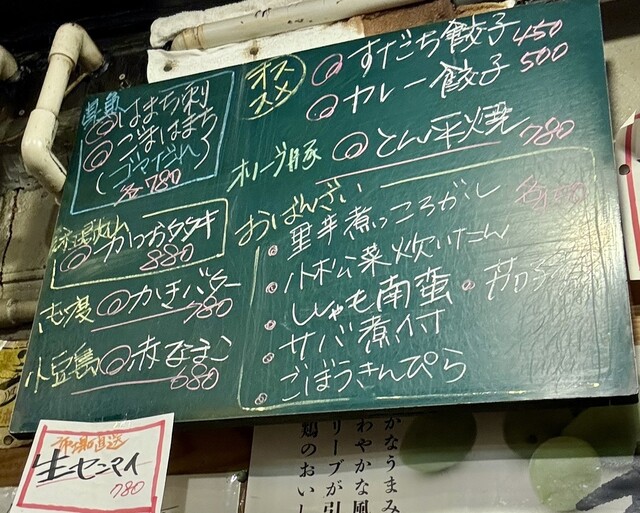 はまち刺
ごまはまち
(ゴマだれ)
各780
かつおタタキ
880
かきバター
780
小豆島
赤なまこ
680
オススメ
すだち餃子 450
カレー餃子 500
オリーブ豚
とん平焼 780
おばんざい
里芋煮っころがし
小松菜炊いたん
ししゃも南蛮
茄子
サバ煮付
ごぼうきんぴら
市場直送
生センマイ
780
かなうまみ
わやかな風
リーブが引
鶏のおいし